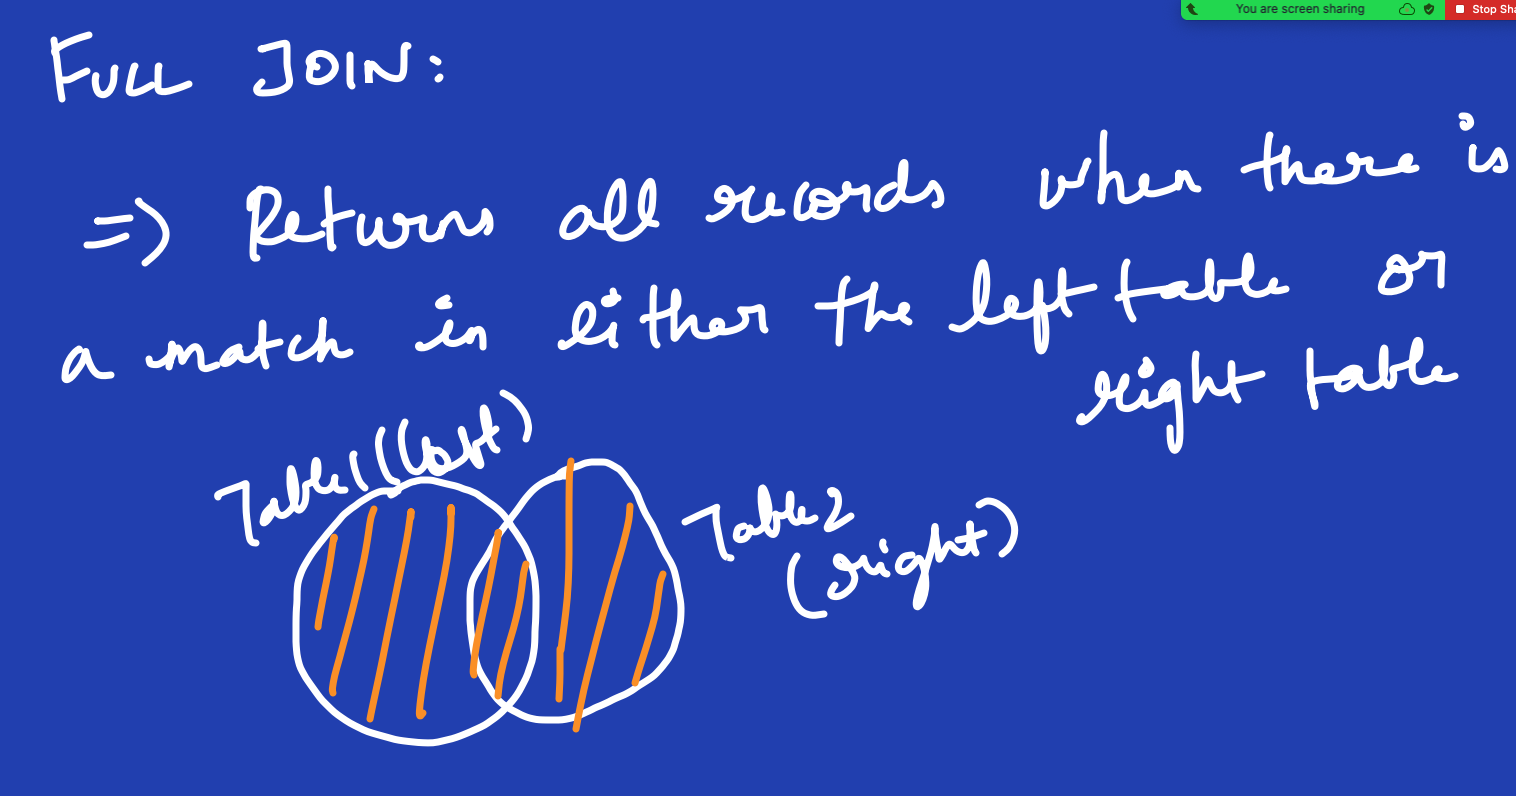 You are screen sharing
Stop Sha
FULL JOIN:
=> Returns all records when there is
a match in either the left table or
right table
Table1 (left)
Table2
(right)